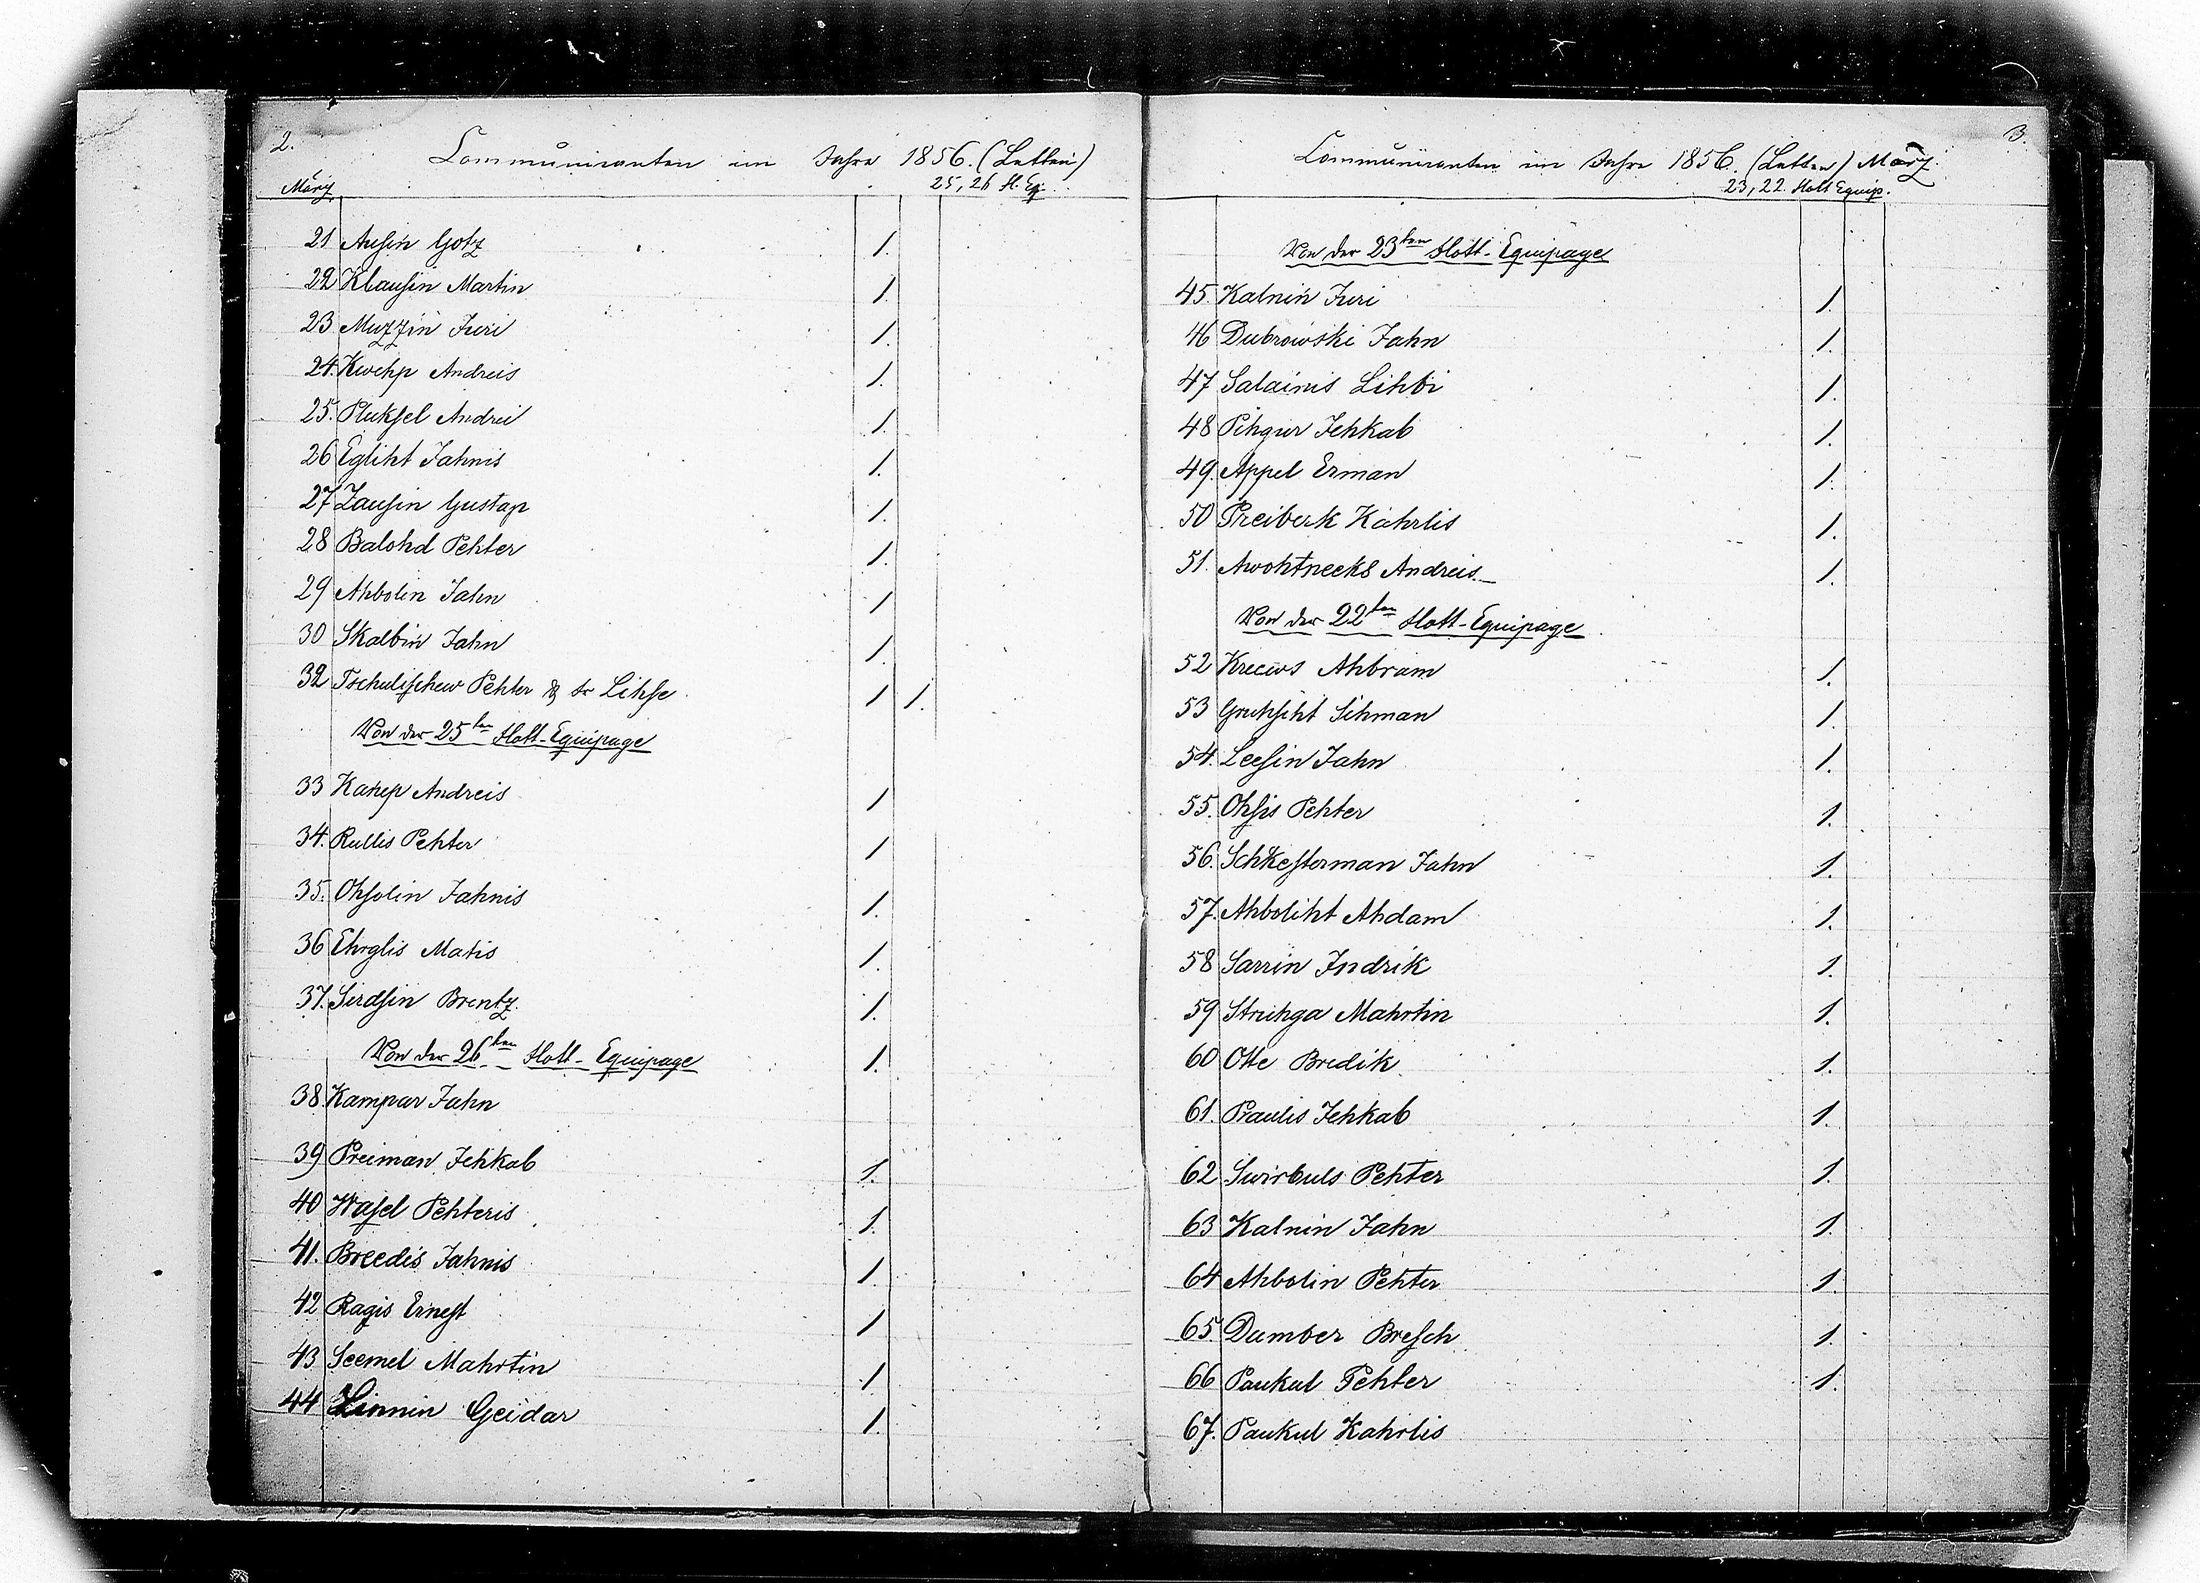 2.
Communicanten im Jahre 1856. (Letten)
März 25, 26 Fl. Eq.
21 Ausin Gotz 1.
22 Klausin Martin 1.
23 Muzzin Juri 1.
24. Kwehp Andreis 1.
25. Pluksel Andrei 1.
26 Egliht Jahnis 1.
27 Zausin Gustap 1.
28 Balohd Pehter 1.
29 Ahbolin Jahn 1
30 Skalbin Jahn 1.
32 Tschulischew Pehter & Lihse 1 1.
Von der 25ten Flott-Equipage
33 Kahp Andreis 1
34. Rullis Pehter 1
35. Ohsolin Jahnis 1.
36 Ehrglis Matis 1.
37. Sirdsin Brentz 1.
Von der 26ten Flott-Equipage 1.
38 Kampar Jahn
39 Preiman Jehkab 1.
40 Wasel Pehteris 1.
41. Breedis Jahnis 1.
42 Ragis Ernest 1
43 Seemel Mahrtin 1
44 Linnin Geidar 1.
3.
Communicanten im Jahre 1856. (Letten) März.
23, 22. Flott Equip.
Von der 23ten Flott-Equipage
45. Kalnin Juri 1.
46 Dubrowski Jahn 1.
47 Salainis Lihbi 1.
48 Pihgur Jehkab 1.
49. Appel Erman 1.
50 Preiberk Kahrlis 1.
51. Awohtneeks Andreis 1.
Von der 22ten Flott-Equipage
52 Kreews Ahbram 1.
53 Gruhsiht Sihman 1.
54. Leesin Jahn 1.
55. Ohsis Pehter 1.
56. Schkesterman Jahn 1.
57. Ahboliht Ahdam 1.
58 Sarrin Indrik 1.
59 Struhga Mahrtin 1.
60 Otte Bredik 1.
61. Praulis Jehkab 1.
62 Swirbuls Pehter 1.
63 Kalnin Jahn 1.
64 Ahbolin Pehter 1.
65 Dumber Bresch 1.
66 Paukul Pehter 1.
67. Paukul Kahrlis